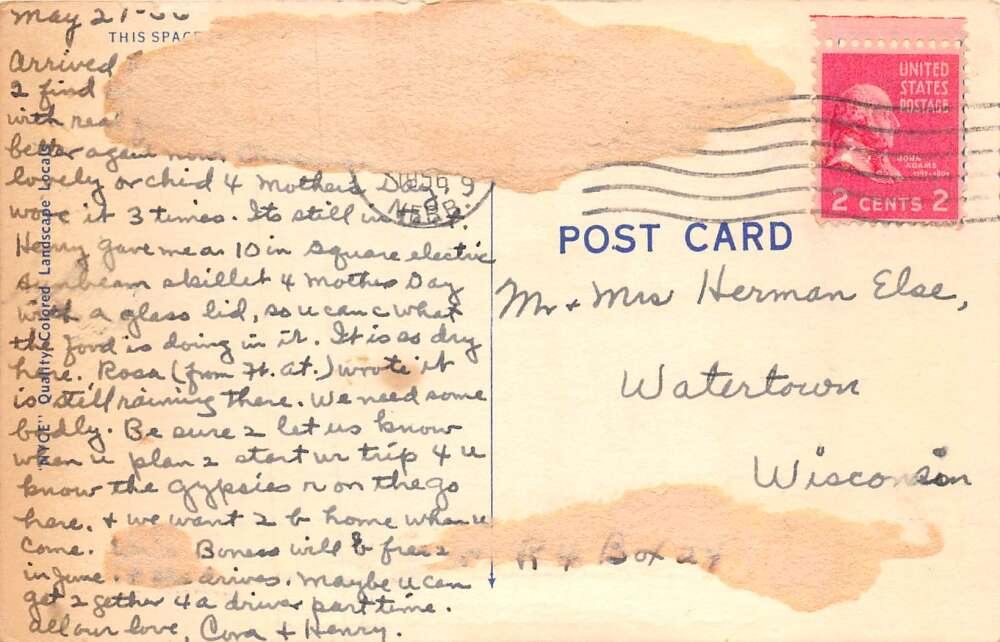 May 21-56
THIS SPACE
Arrived
2 find
with real
better again now.
lovely orchid 4 Mothers Day, 9
wore it 3 times. Its still
Henry gave me a 10 in square electric
sunbeam skillet 4 Mothers Day
with a glass lid, so u can c what
the food is doing in it. It is so dry
here. Rosa (from Ft. at.) wrote it
is still raining there. We need some
badly. Be sure 2 let us know
when u plan 2 start ur trip 4 u
know the gypsies r on the go
here. + we want 2 b home when u
come. Boness will b free 2
in June. drives. Maybe u can
get 2 gether 4 a driver part time.
all our love, Cora + Henry.
"NYCE" Quality, Colored Landscape Locals
NEBR.
UNITED
STATES
POSTAGE
JOHN
ADAMS
2 CENTS 2
POST CARD
Mr + Mrs Herman Else,
Watertown
Wisconsin
R 4 Box 29